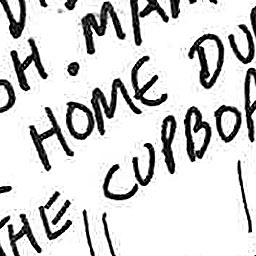 OH. MA
HOME DU
THE CUPBOA